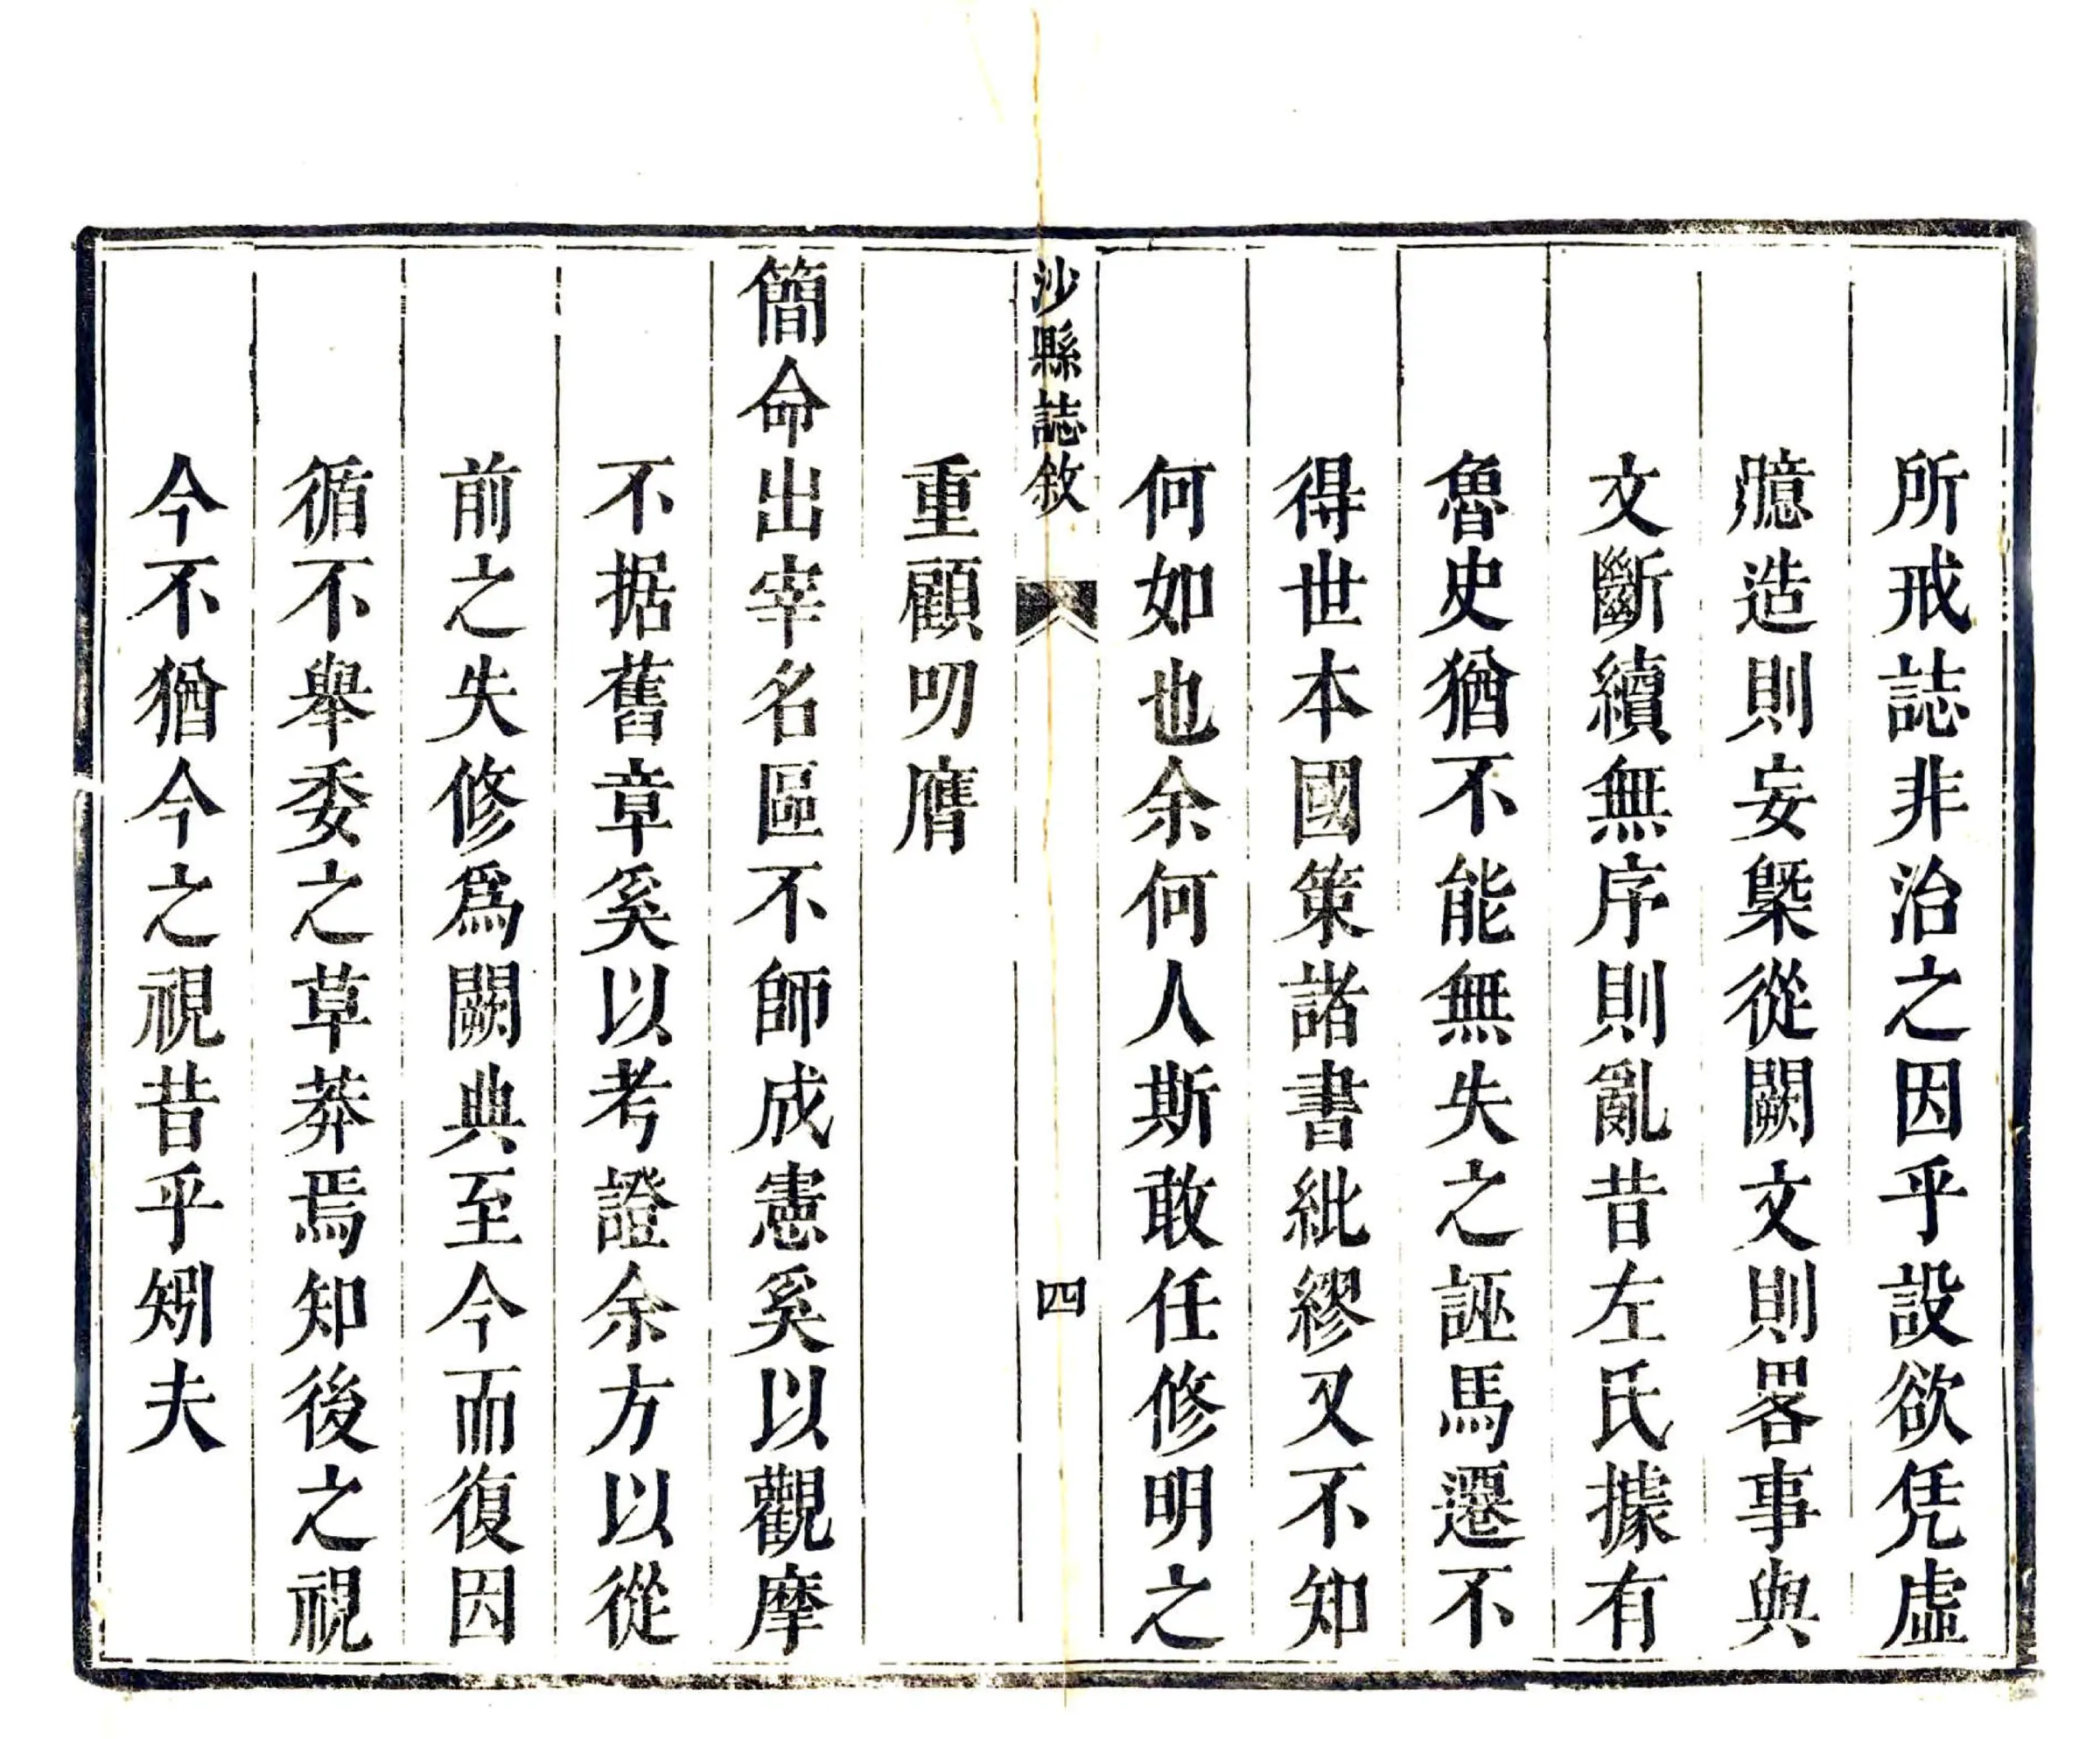 所戒誌非治之因乎設欲凭虛
臆造則妄槩從闕文則畧事與
文斷續無序則亂昔左氏據有
魯史猶不能無失之誣馬遷不
得世本國策諸書紕繆又不知
何如也余何人斯敢任修明之
沙縣誌敘
四
重顧叨膺
簡命出宰名區不師成憲奚以觀摩
不据舊章奚以考證余方以從
前之失修爲闕典至今而復因
循不舉委之草莽焉知後之視
今不猶今之視昔乎矧夫